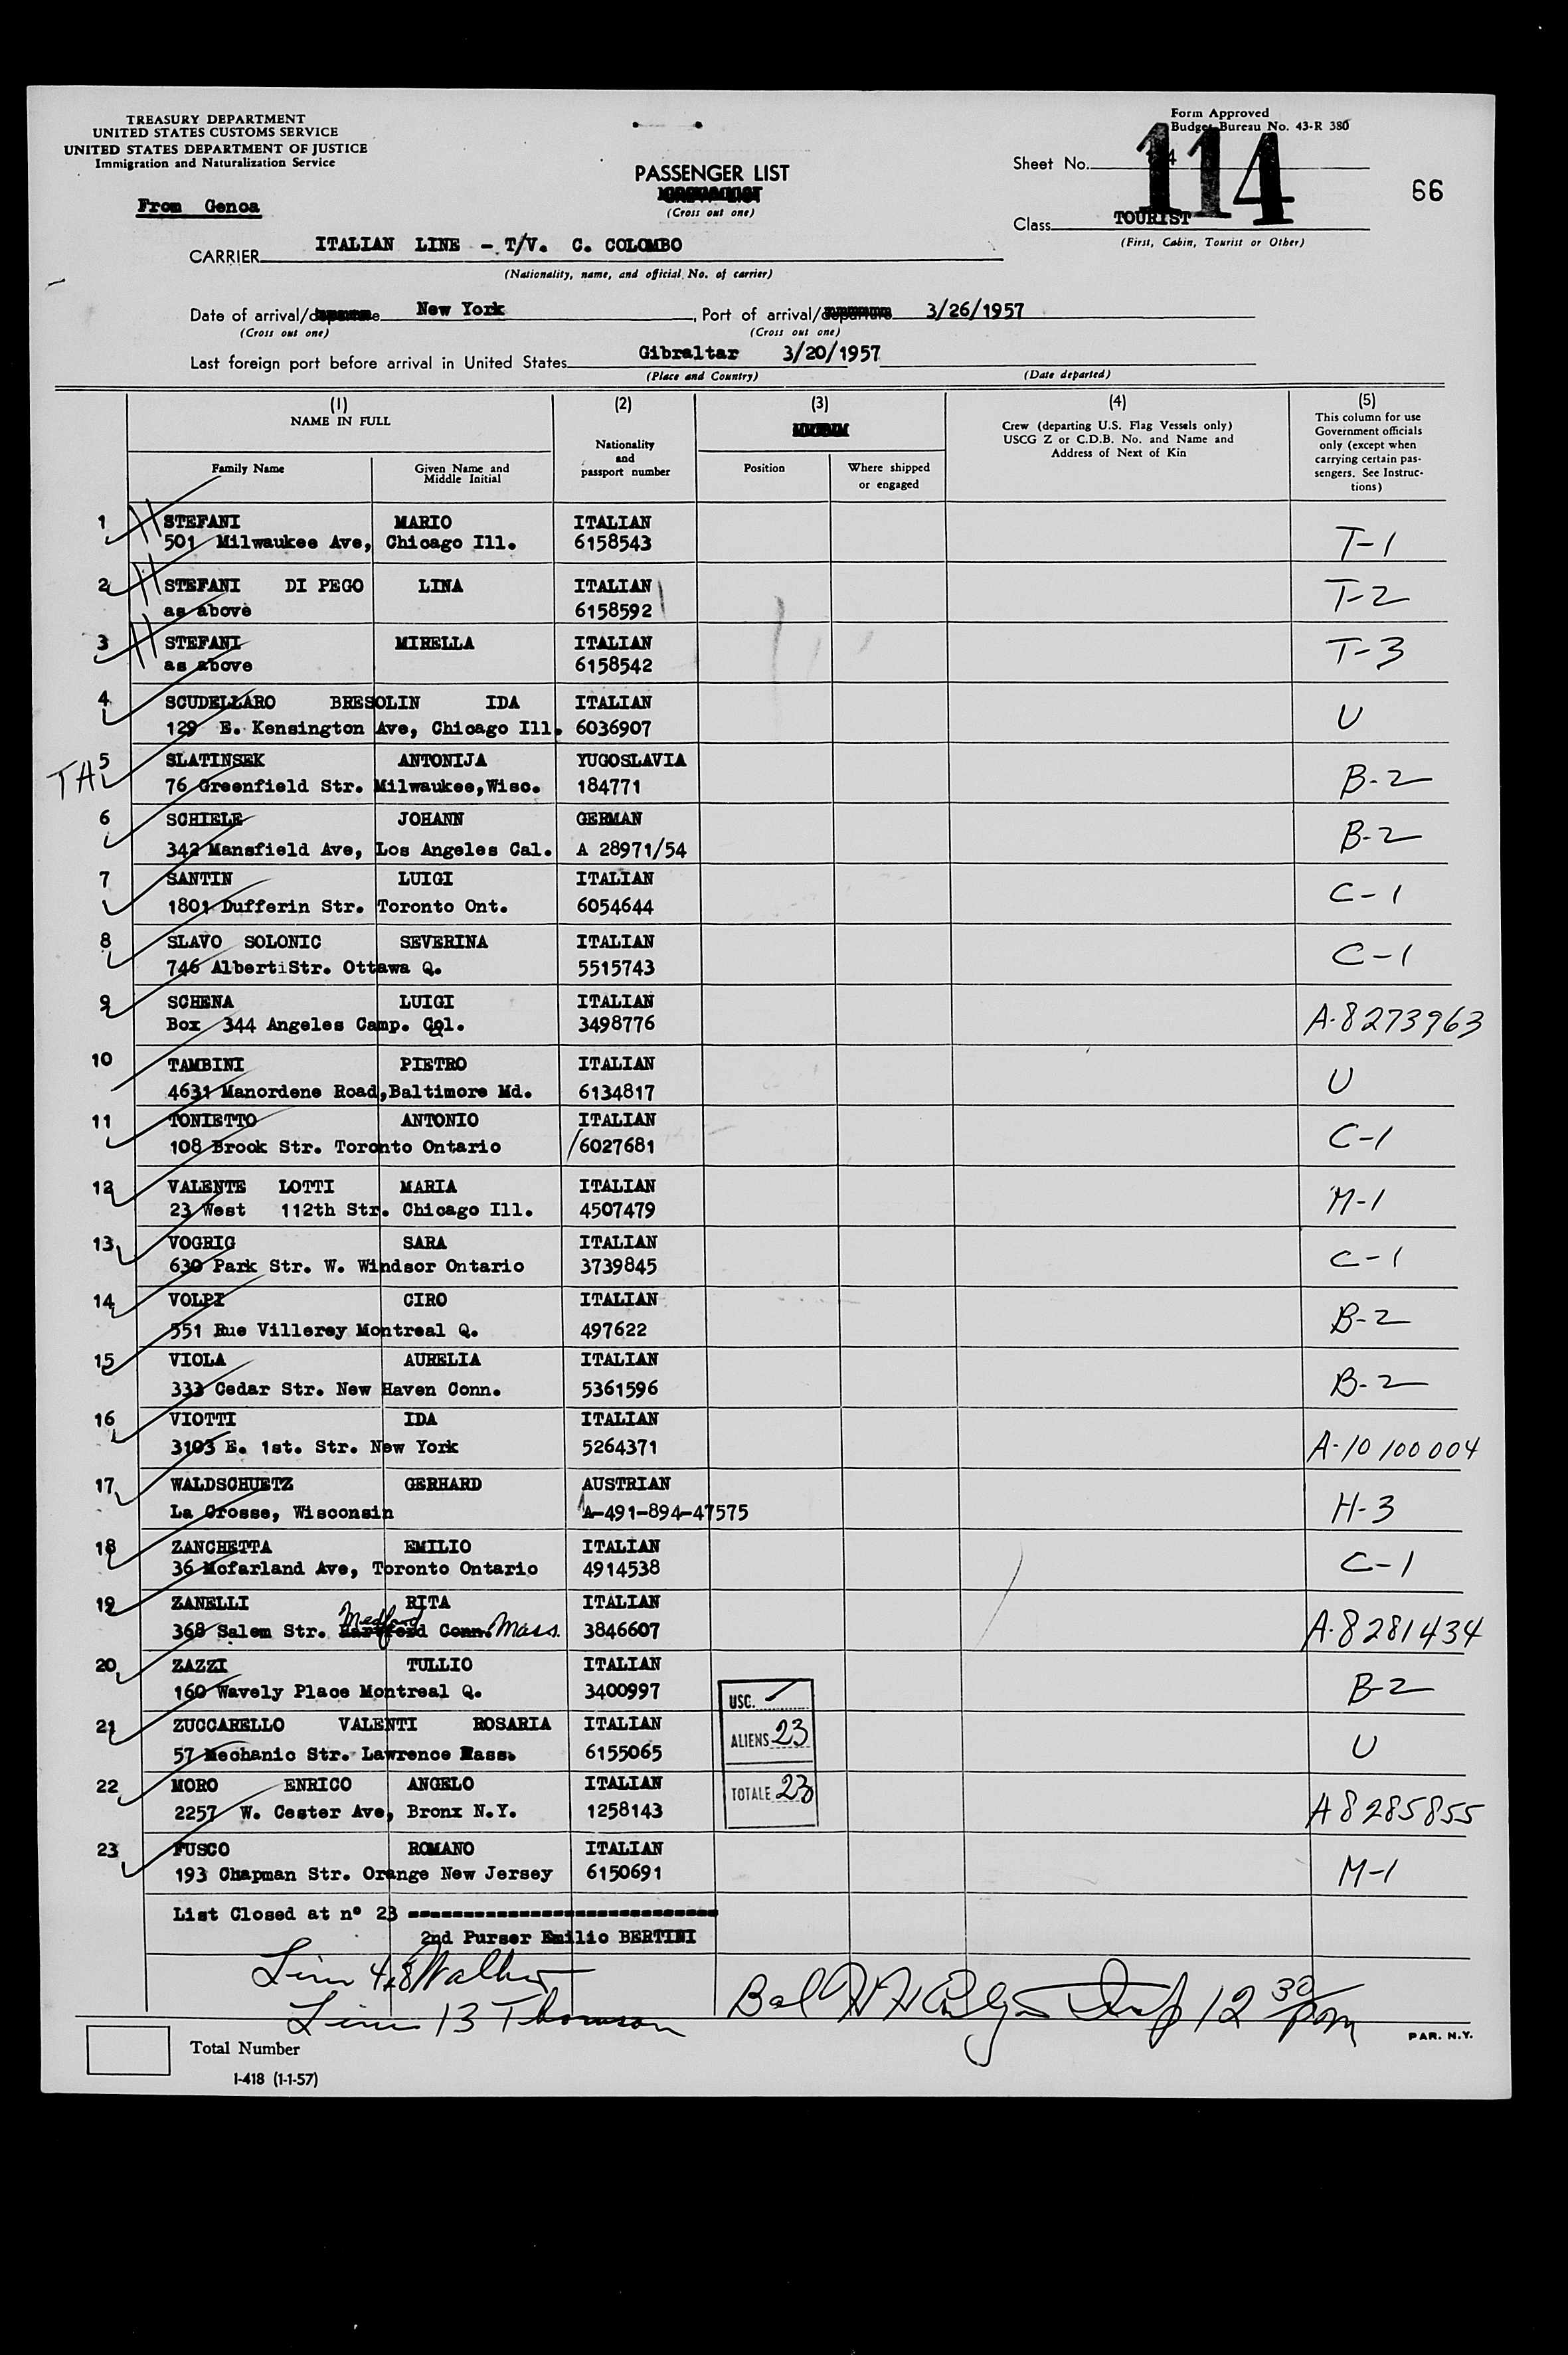 TREASURY DEPARTMENT
UNITED STATES CUSTOMS SERVICE
UNITED STATES DEPARTMENT OF JUSTICE
Immigration and Naturalization Service
Form Approved
Budget Bureau No. 43-R 380
From Genoa
PASSENGER LIST
(Cross out one)
Sheet No. 114
66
Class TOURIST
(First, Cabin, Tourist or Other)
CARRIER ITALIAN LINE - T/V. C. COLOMBO
(Nationality, name, and official No. of carrier)
Date of arrival/departure New York, Port of arrival/departure 3/26/1957
(Cross out one) (Cross out one)
Last foreign port before arrival in United States Gibraltar 3/20/1957
(Place and Country) (Date departed)
(1) (2) (3) (4) (5)
NAME IN FULL
Family Name
Given Name and
Middle Initial
Nationality
and
passport number
Position
Where shipped
or engaged
Crew (departing U.S. Flag Vessels only)
USCG Z or C.D.B. No. and Name and
Address of Next of Kin
This column for use
Government officials
only (except when
carrying certain pas-
sengers. See Instruc-
tions)
1 STEFANI MARIO ITALIAN
501 Milwaukee Ave, Chicago Ill. 6158543 T-1
2 STEFANI DI PEGO LINA ITALIAN T-2
as above 6158592
3 STEFANI MIRELLA ITALIAN T-3
as above 6158542
4 SCUDELLARO BRESOLIN IDA ITALIAN U
129 E. Kensington Ave, Chicago Ill. 6036907
TA 5 SLATINSEK ANTONIJA YUGOSLAVIA
76 Greenfield Str. Milwaukee,Wisc. 184771 B-2
6 SCHIELE JOHANN GERMAN B-2
342 Mansfield Ave, Los Angeles Cal. A 28971/54
7 SANTIN LUIGI ITALIAN C-1
1801 Dufferin Str. Toronto Ont. 6054644
8 SLAVO SOLONIC SEVERINA ITALIAN C-1
746 AlbertiStr. Ottawa Q. 5515743
9 SCHENA LUIGI ITALIAN
Box 344 Angeles Camp. Cal. 3498776 A-8273963
10 TAMBINI PIETRO ITALIAN U
4631 Manordene Road,Baltimore Md. 6134817
11 TONIETTO ANTONIO ITALIAN C-1
108 Brook Str. Toronto Ontario 6027681
12 VALENTE LOTTI MARIA ITALIAN M-1
23 West 112th Str. Chicago Ill. 4507479
13 VOGRIG SARA ITALIAN C-1
630 Park Str. W. Windsor Ontario 3739845
14 VOLPI CIRO ITALIAN B-2
551 Rue Villerey Montreal Q. 497622
15 VIOLA AURELIA ITALIAN
333 Cedar Str. New Haven Conn. 5361596 B-2
16 VIOTTI IDA ITALIAN
3103 E. 1st. Str. New York 5264371 A-10 100 004
17 WALDSCHUETZ GERHARD AUSTRIAN
La Crosse, Wisconsin A-491-894-47575 H-3
18 ZANCHETTA EMILIO ITALIAN
36 Mcfarland Ave, Toronto Ontario 4914538 C-1
19 ZANELLI RITA ITALIAN
368 Salem Str. Hartford Conn. Medford Mass. 3846607 A-8281434
20 ZAZZI TULLIO ITALIAN
160 Wavely Place Montreal Q. 3400997 B-2
21 ZUCCARELLO VALENTI ROSARIA ITALIAN
57 Mechanic Str. Lawrence Mass. 6155065 U
22 MORO ENRICO ANGELO ITALIAN
2257 W. Cester Ave, Bronx N.Y. 1258143 A 8285855
23 FUSCO ROMANO ITALIAN
193 Chapman Str. Orange New Jersey 6150691 M-1
USC.
ALIENS 23
TOTALE 23
List Closed at nº 23
2nd Purser Emilio BERTINI
4,8 Walker
13 Thomson
Bal Insp 12 30 pm
Total Number
I-418 (1-1-57)
PAR. N.Y.